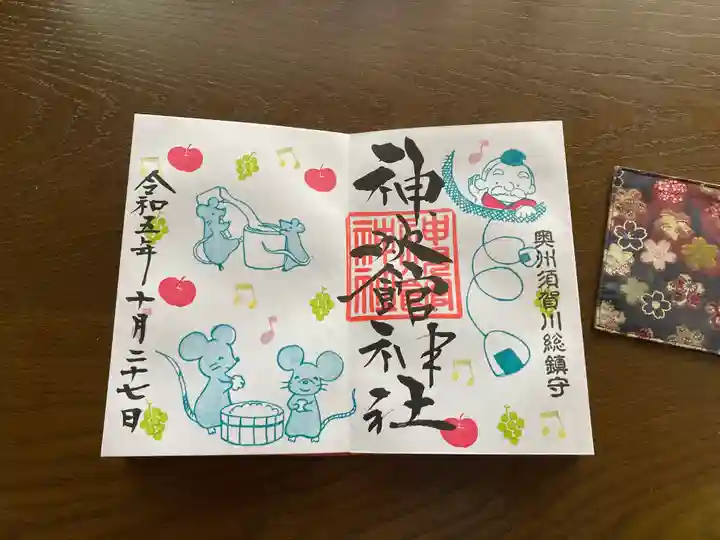 奥州須賀川総鎮守
神炊館神社
令和五年十月二十七日